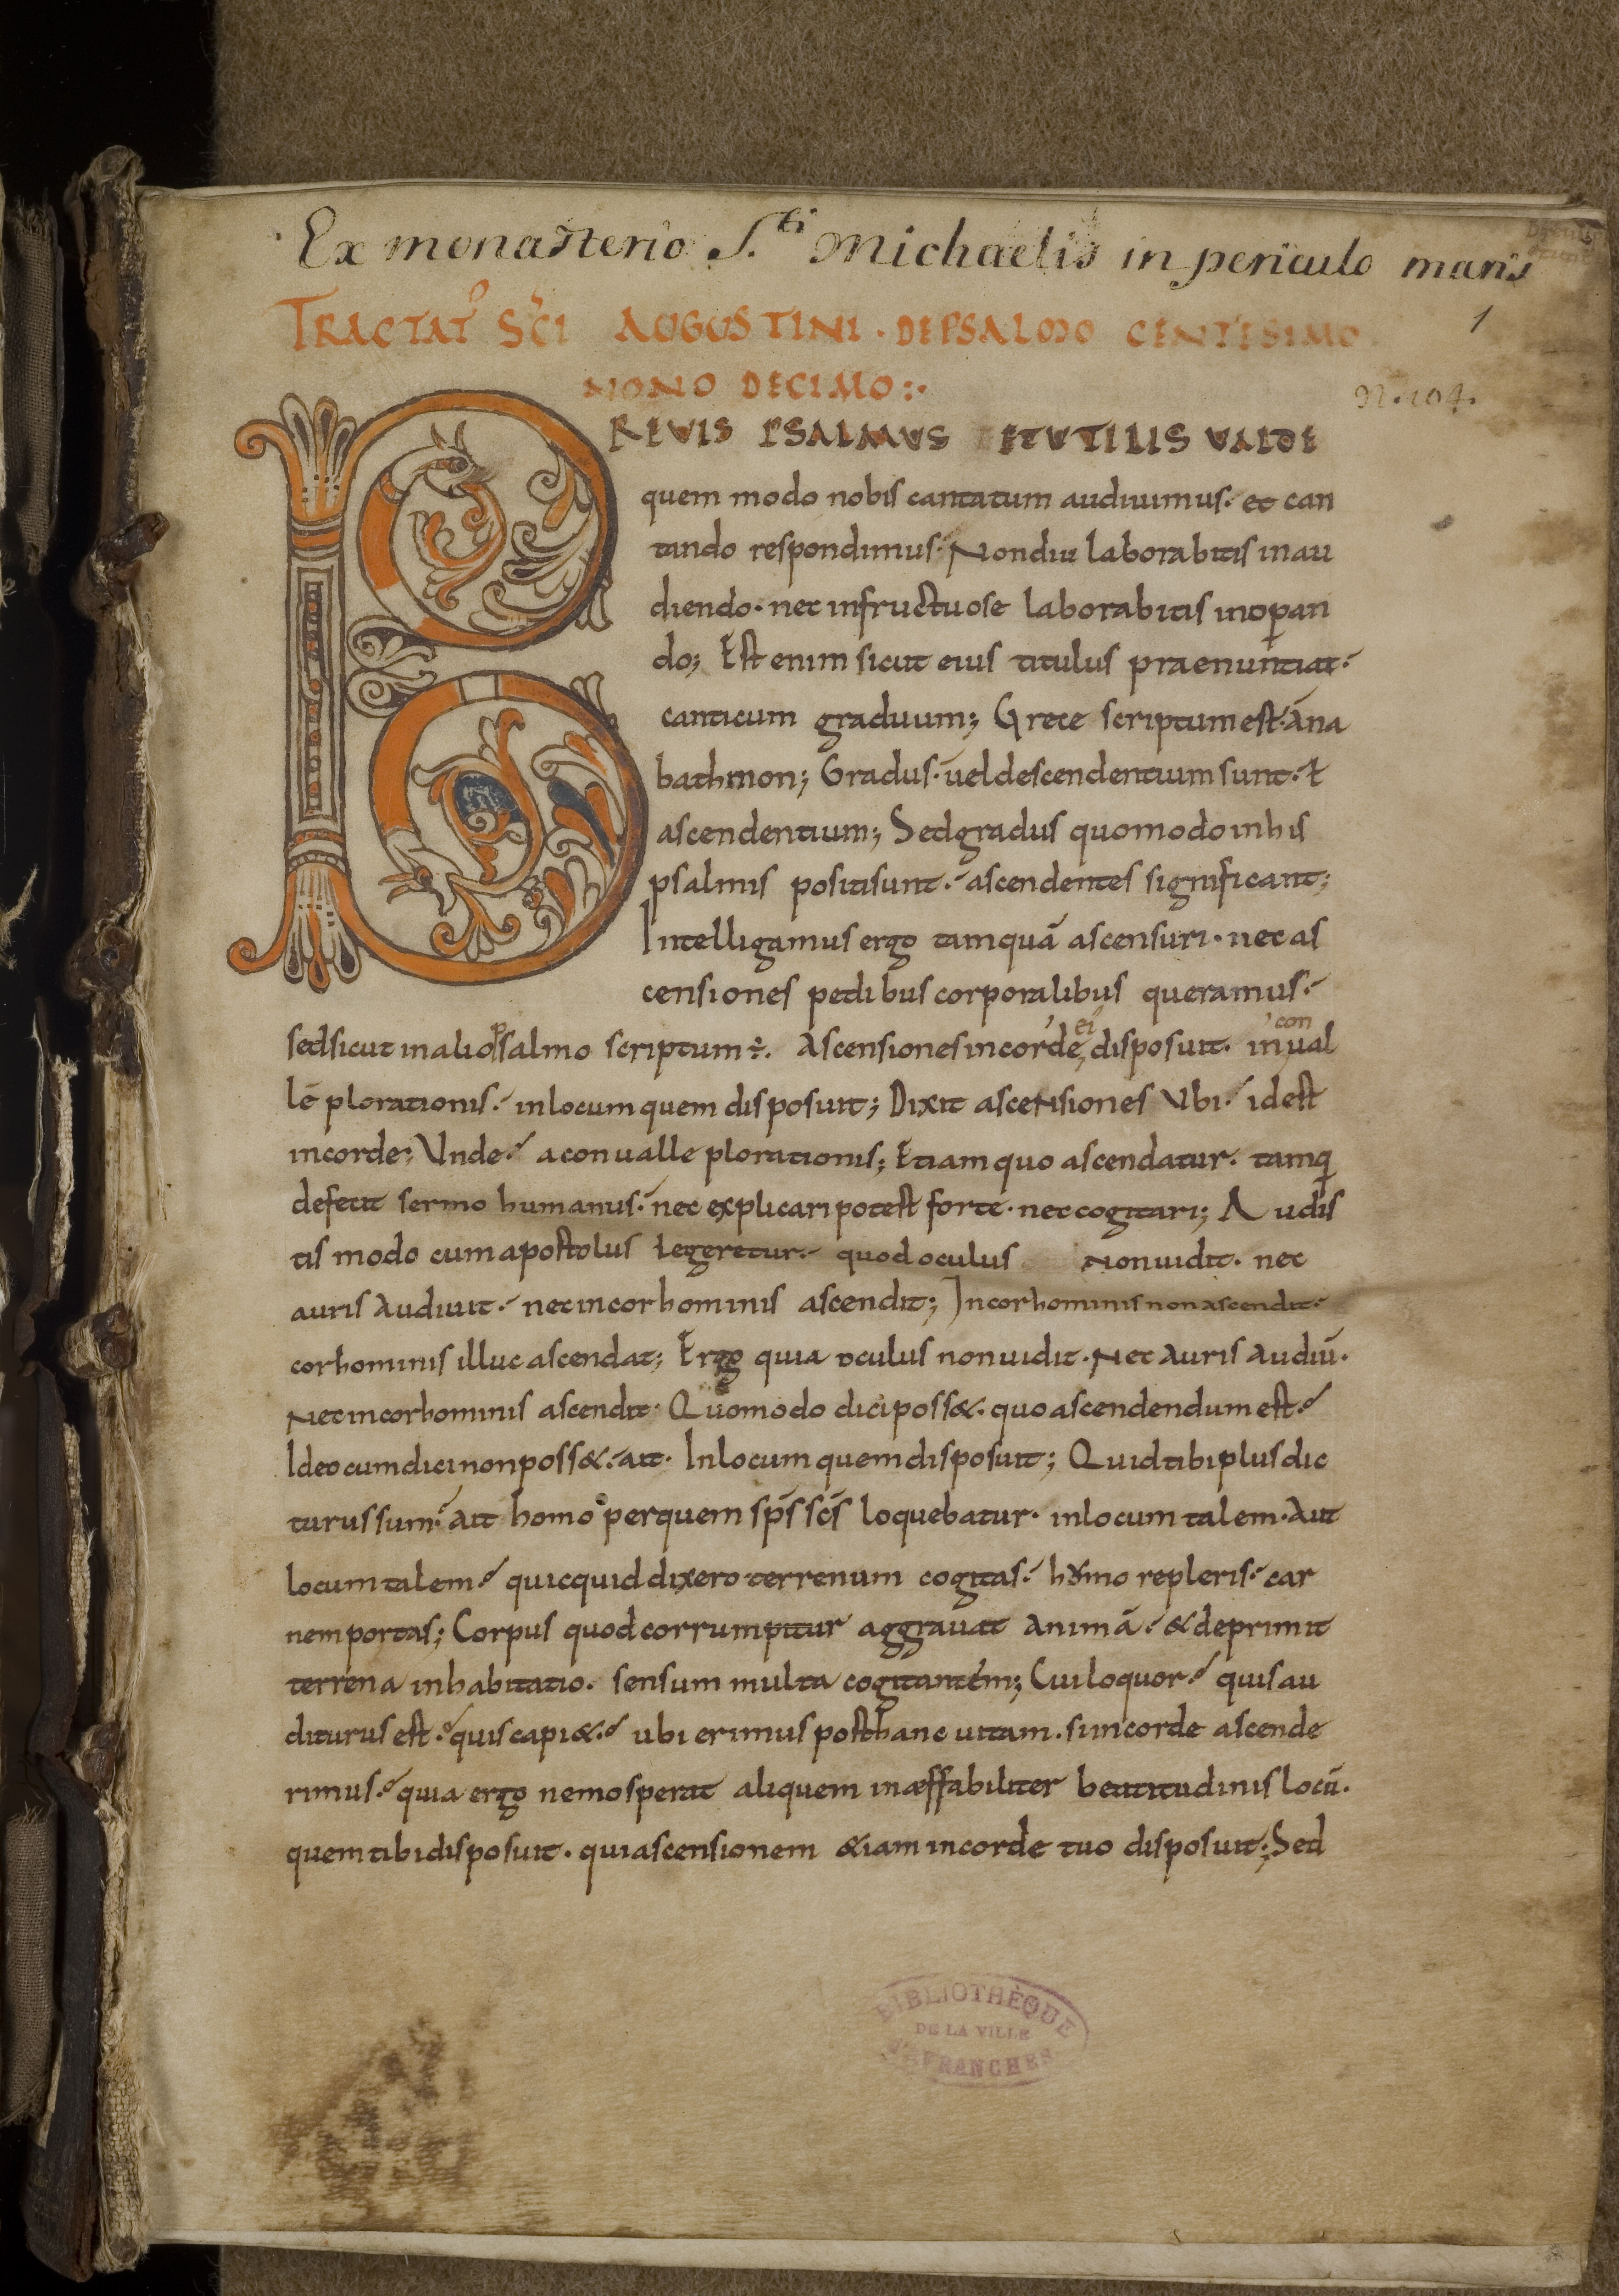 Ex monasterio S.ti Michaelis in periculo maris
1
TRACTAT᾿ SC̄I AUGUSTINI · DE PSALMO CENTESIMO
NONO DECIMO :·
N. 104.
BREVIS PSALMUS ET UTILIS VALDE
quem modo nobis cantatum audivimus· et can
tando respondimus· Non diu laborabitis in au
diendo· nec infructuose laborabitis in op̄an
do; Est enim sicut eius titulus praenuntiat·
canticum graduum; Grece scriptum est· ana
bathmon; Gradus· vel descendentium sunt· ł
ascendentium; Sed gradus quomodo in his
psalmis positi sunt· ascendentes significant;
Intelligamus ergo tamquā ascensuri· nec as
censiones pedibus corporalibus queramus·
sed sicut in alio psalmo scriptum ÷. Ascensiones in corde ei᾿ disposuit· in con ual
lē plorationis· in locum quem disposuit; Dixit ascensiones Vbi· id est
in corde; Vnde· a conualle plorationis; Etiam quo ascendatur· tamq̄
defecit sermo humanus· nec explicari potest forte· nec cogitari; Audis
tis modo cum apostolus legeretur· quod oculus non uidit· nec
auris audiuit· nec in cor hominis ascendit; In cor hominis non ascendit·
cor hominis illuc ascendat; Ergo quia oculus non uidit· Nec auris audiū·
Nec in cor hominis ascendit· Quomodo dici poss&· quo ascendendum est·
Ideo cum dici non poss&· ait· In locum quem disposuit; Quid tibi plus dic
turus sum· Ait homo per quem sp̄s sc̄s loquebatur· in locum talem· Aut
locum talem· quicquid dixero· terrenum cogitas· humo repleris· car
nem portas; Corpus quod corrumpitur aggrauat animā· & deprimit
terrena inhabitatio· sensum multa cogitantem; Cui loquor· quis au
diturus est· quis capi&· ubi erimus post hanc uitam· si in corde ascende
rimus· quia ergo nemo sperat aliquem inæffabiliter beatitudinis locū·
quem tibi disposuit· qui ascensionem &iam in corde tuo disposuit; Sed
BIBLIOTHÈQUE
DE LA VILLE
D'AVRANCHES